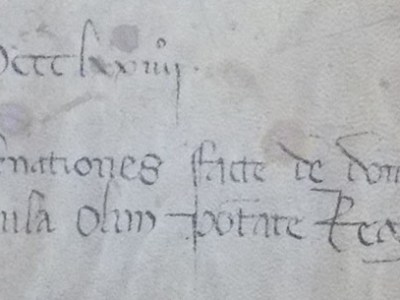 cccc lxxiiij.
nationes facte de dom
ula olim potate Reg